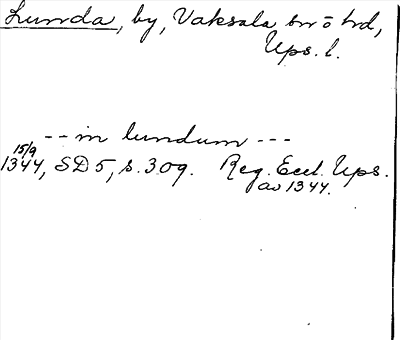 Lunda, by, Vaksala sn o hd,
Ups. l.
-- in lundum ---
15/9
1344, SD 5, s. 309. Reg. Eccl. Ups.
av 1344.